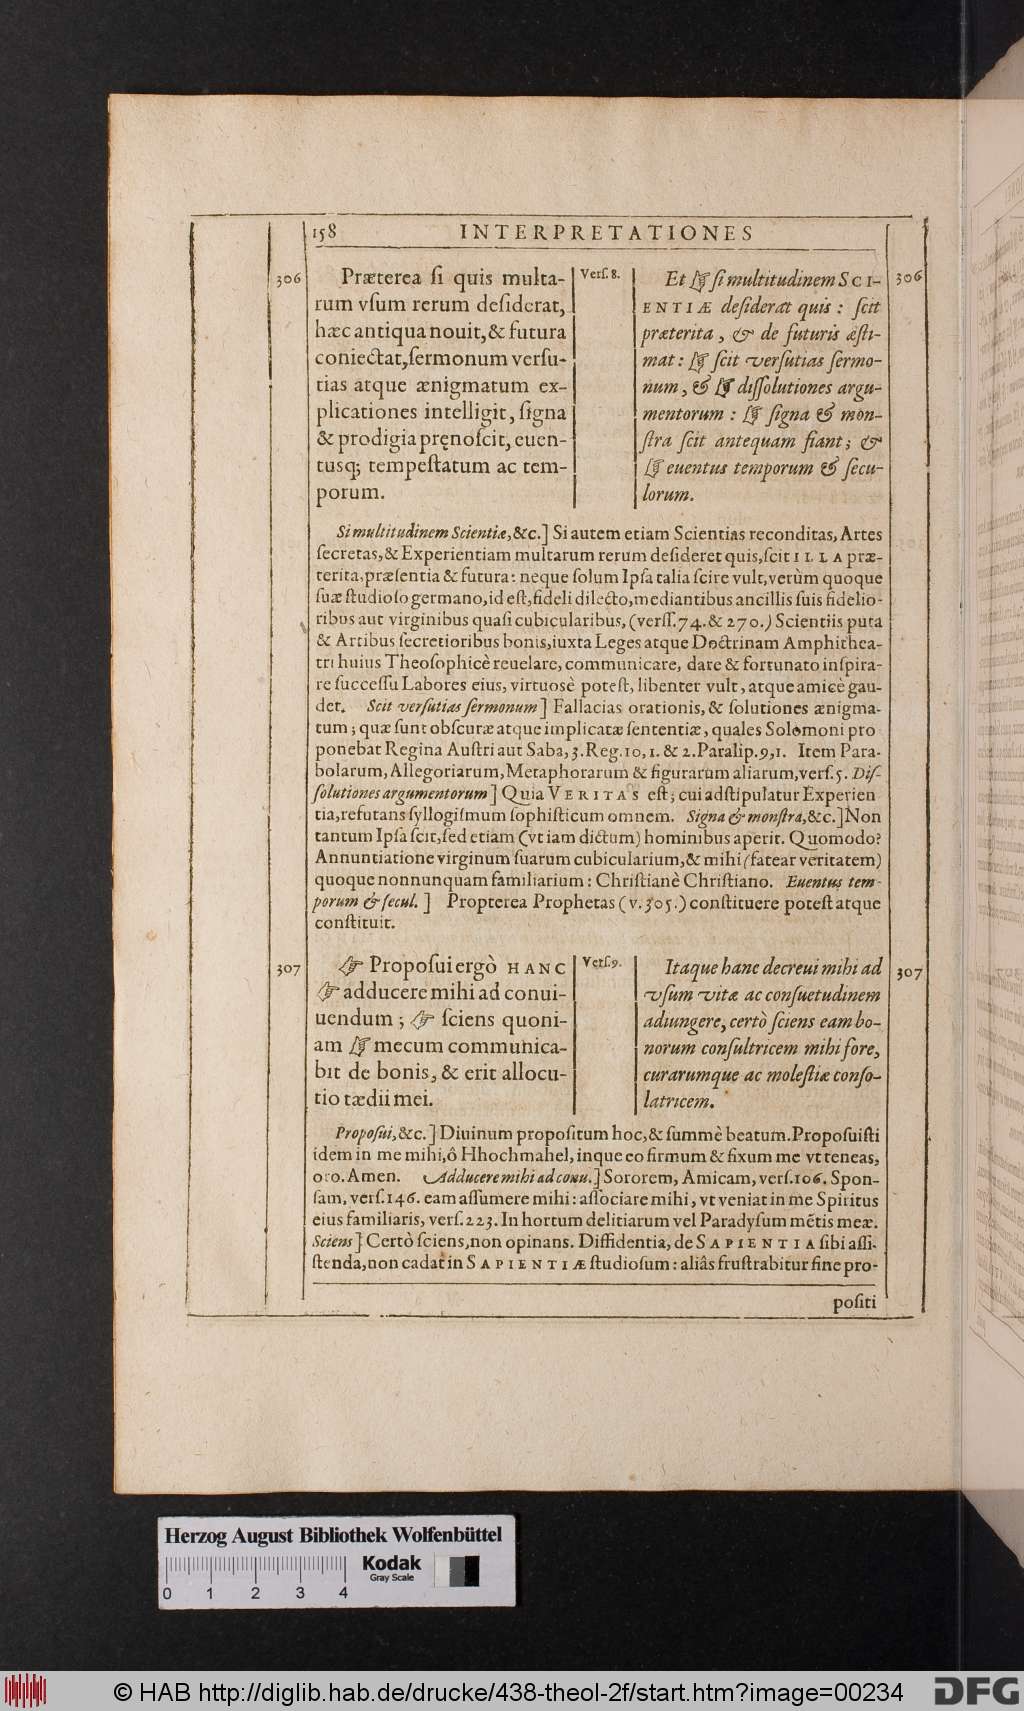 158
INTERPRETATIONES
306
Præterea ſi quis multa-
rum vſum rerum deſiderat,
hæc antiqua nouit, & futura
coniectat, ſermonum verſu-
tias atque ænigmatum ex-
plicationes intelligit, ſigna
& prodigia pręnoſcit, euen-
tusq; tempeſtatum ac tem-
porum.
Verſ. 8.
Et ☞ ſi multitudinem SCI-
ENTIÆ deſiderat quis : ſcit
præterita, & de futuris æſti-
mat : ☞ ſcit verſutias ſermo-
num, & ☞ diſſolutiones argu-
mentorum : ☞ ſigna & mon-
ſtra ſcit antequam fiant; &
☞ euentus temporum & ſecu-
lorum.
306
Si multitudinem Scientiæ, &c.] Si autem etiam Scientias reconditas, Artes
ſecretas, & Experientiam multarum rerum deſideret quis, ſcit ILLA præ-
terita, præſentia & futura: neque ſolum Ipſa talia ſcire vult, verùm quoque
ſuæ ſtudioſo germano, id eſt, fideli dilecto, mediantibus ancillis ſuis fidelio-
ribus aut virginibus quaſi cubicularibus, (verſſ. 74. & 270.) Scientiis puta
& Artibus ſecretioribus bonis, iuxta Leges atque Doctrinam Amphithea-
tri huius Theoſophicè reuelare, communicare, dare & fortunato inſpira-
re ſucceſſu Labores eius, virtuosè poteſt, libenter vult, atque amicè gau-
det. Scit verſutias ſermonum] Fallacias orationis, & ſolutiones ænigma-
tum; quæ ſunt obſcuræ atque implicatæ ſententiæ, quales Solomoni pro
ponebat Regina Auſtri aut Saba, 3. Reg. 10, 1. & 2. Paralip. 9, 1. Item Para-
bolarum, Allegoriarum, Metaphorarum & figurarum aliarum, verſ. 5. Diſ-
ſolutiones argumentorum] Quia VERITAS eſt; cui adſtipulatur Experien
tia, refutans ſyllogiſmum ſophiſticum omnem. Signa & monſtra, &c.] Non
tantum Ipſa ſcit, ſed etiam (vt iam dictum) hominibus aperit. Quomodo?
Annuntiatione virginum ſuarum cubicularium, & mihi (fatear veritatem)
quoque nonnunquam familiarium: Chriſtianè Chriſtiano. Euentus tem-
porum & ſecul.] Propterea Prophetas (v. 305.) conſtituere poteſt atque
conſtituit.
307
☞ Propoſui ergò HANC
☞ adducere mihi ad conui-
uendum; ☞ ſciens quoni-
am ☞ mecum communica-
bit de bonis, & erit allocu-
tio tædii mei.
Verſ. 9.
Itaque hanc decreui mihi ad
vſum vitæ ac conſuetudinem
adiungere, certò ſciens eam bo-
norum conſultricem mihi fore,
curarumque ac moleſtiæ conſo-
latricem.
307
Propoſui, &c.] Diuinum propoſitum hoc, & ſummè beatum. Propoſuiſti
idem in me mihi, ô Hhochmahel, inque eo firmum & fixum me vt teneas,
oro. Amen. Adducere mihi ad conu.] Sororem, Amicam, verſ. 106. Spon-
ſam, verſ. 146. eam aſſumere mihi: aſſociare mihi, vt veniat in me Spiritus
eius familiaris, verſ. 223. In hortum delitiarum vel Paradyſum mẽtis meæ.
Sciens] Certò ſciens, non opinans. Diffidentia, de SAPIENTIA ſibi aſſi-
ſtenda, non cadat in SAPIENTIÆ ſtudioſum: aliâs fruſtrabitur fine pro-
poſiti
Herzog August Bibliothek Wolfenbüttel
Kodak
Gray Scale
0 1 2 3 4
© HAB http://diglib.hab.de/drucke/438-theol-2f/start.htm?image=00234
DFG